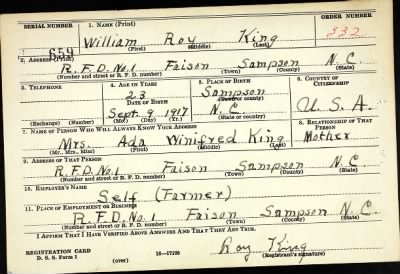 SERIAL NUMBER 1. NAME (Print) ORDER NUMBER
659 William Roy King 332
(First) (Middle) (Last)
2. ADDRESS (Print)
R.F.D. No. 1 Faison Sampson N.C.
(Number and street or R. F. D. number) (Town) (County) (State)
3. TELEPHONE 4. AGE IN YEARS 5. PLACE OF BIRTH 6. COUNTRY OF CITIZENSHIP
23 Sampson
DATE OF BIRTH (Town or county)
Sept. 9, 1917 N.C. U.S.A.
(Exchange) (Number) (Mo.) (Day) (Yr.) (State or country)
7. NAME OF PERSON WHO WILL ALWAYS KNOW YOUR ADDRESS 8. RELATIONSHIP OF THAT PERSON
Mrs. Ada Winifred King Mother
(Mr., Mrs., Miss) (First) (Middle) (Last)
9. ADDRESS OF THAT PERSON
R.F.D. No. 1 Faison Sampson N.C.
(Number and street or R. F. D. number) (Town) (County) (State)
10. EMPLOYER'S NAME
Self (Farmer)
11. PLACE OF EMPLOYMENT OR BUSINESS
R.F.D. No. 1 Faison Sampson N.C.
(Number and street or R. F. D. number) (Town) (County) (State)
I AFFIRM THAT I HAVE VERIFIED ABOVE ANSWERS AND THAT THEY ARE TRUE.
REGISTRATION CARD Roy King
D. S. S. Form 1 (over) 16—17105 (Registrant's signature)